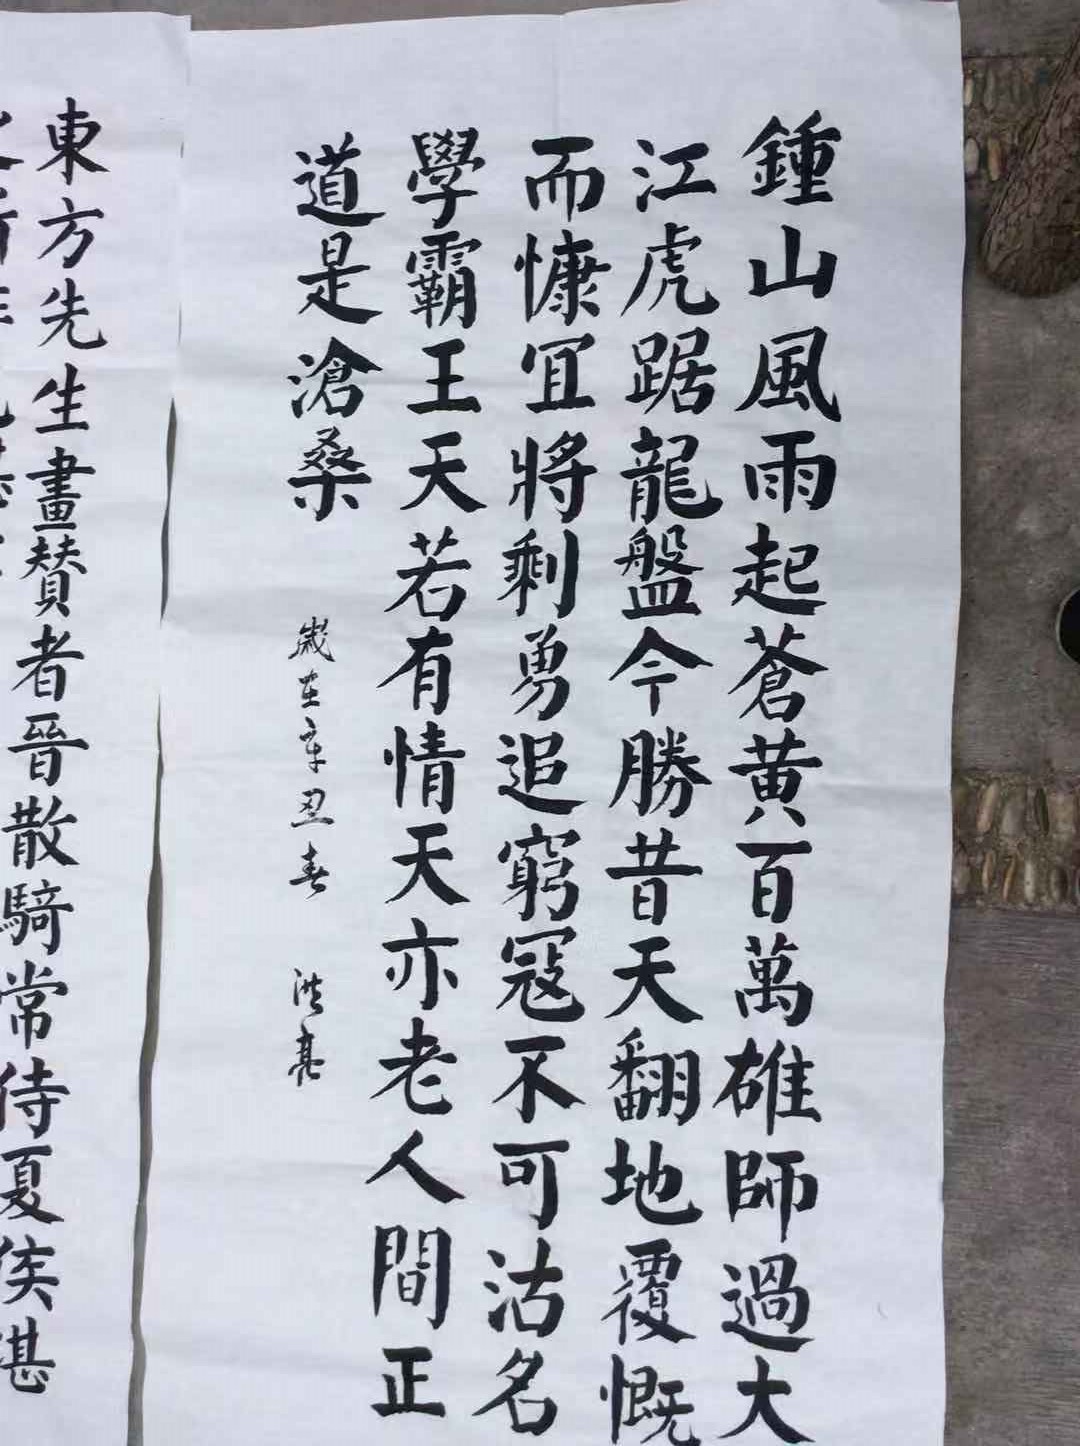 鍾山風雨起蒼黄百萬雄師過大
江虎踞龍盤今勝昔天翻地覆慨
而慷宜將剩勇追窮寇不可沽名
學霸王天若有情天亦老人間正
道是滄桑
歲在辛丑春 洪亮
東方先生畫賛者晉散騎常侍夏侯湛